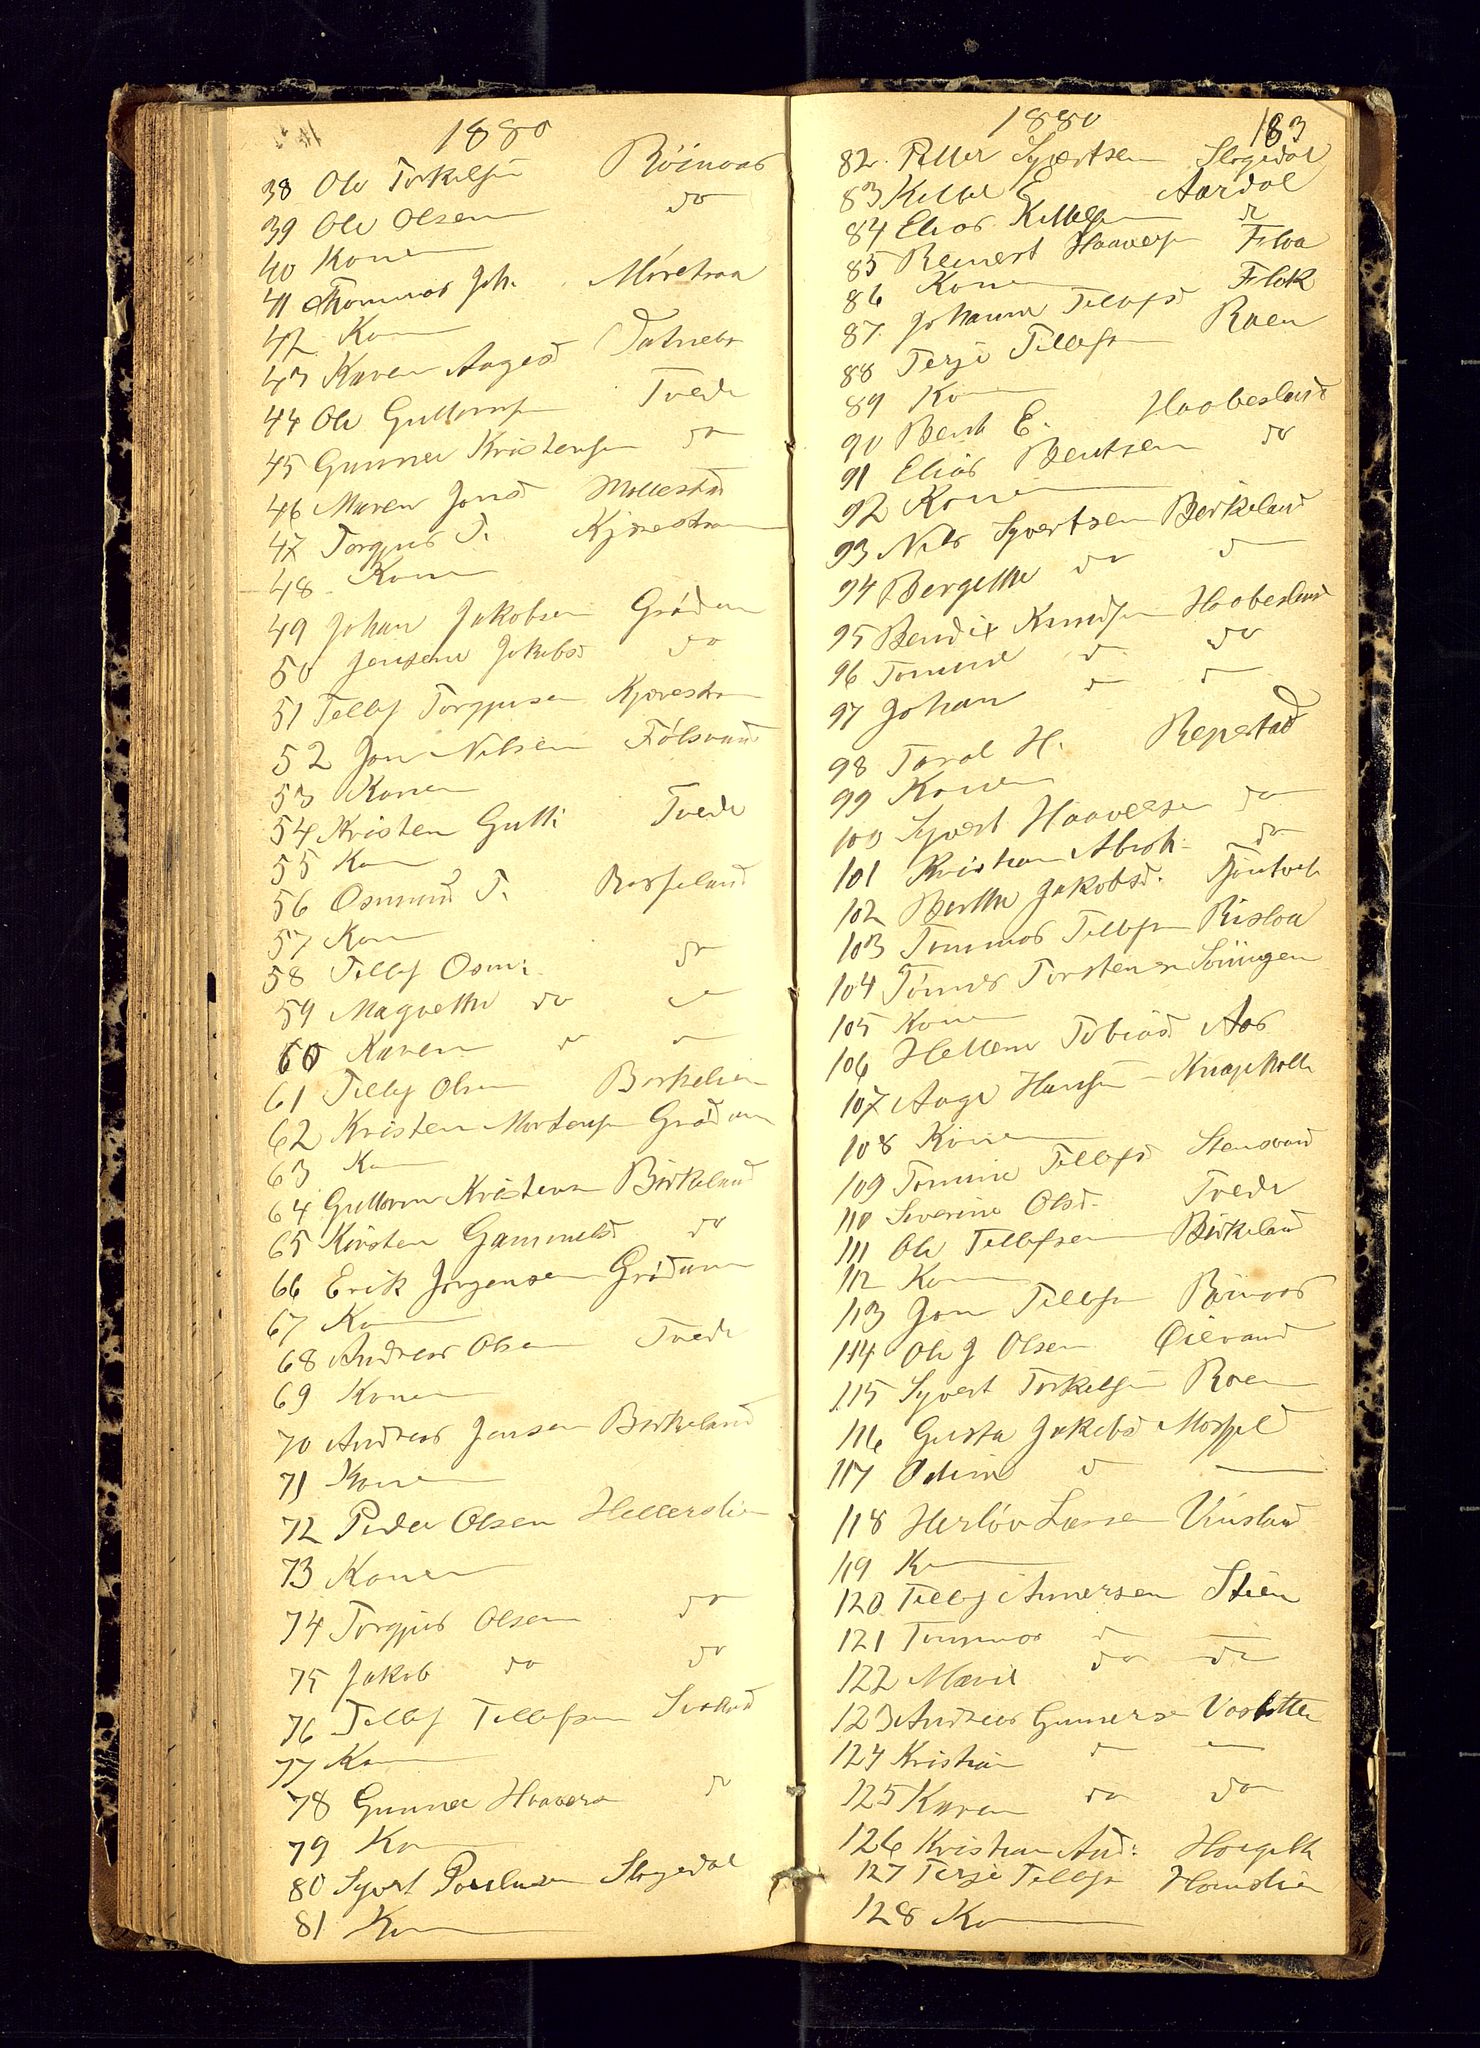 1880
38 Ole Torkelsen Röinaas
39 Ole Olsen do
40 Konen
41 Tommas Joh. Moretraa
42 Kon
43 Karen Aagesd
44 Ole Guttormsen Tvede
45 Gunner Kristensen do
46 Maren Jonsd Mollestad
47 Torgjus T. Kjærestrøm
48 Konen
49 Johan Jakobsen Grödum
50 Jensine Jakobsd do
51 Tellef Torgjusen Kjærestrøm
52 Jon Nilsen Fölsvand
53 Konen
54 Kristen Gutt: Tvede
55 Kon
56 Osmund T. Birkeland
57 Kon
58 Tellef Osm: do
59 Magrethe do do
60 Karen do do
61 Tellef Olsen Birkelien
62 Kristen Mortensen Grödum
63 Kon
64 Guttorm Kristensen Birkeland
65 Kirsten Gammelsd do
66 Erik Jörgensen Grödum
67 Kon
68 Andreas Olsen Tvede
69 Konen
70 Andreas Jensen Birkeland
71 Konen
72 Peder Olsen Hellerslien
73 Konen
74 Torgjus Olsen do
75 Jakob do do
76 Tellef Tellefsen
77 Kon
78 Gunner Haavors do
79 Kon
80 Syvert Poulusen Slogedal
81 Kon
1880 183
82. Petter Syvertsen Slogedal
83 Kittel E Aardal
84 Elias Kittelsen do
85 Reinert Haavorsen Flaa
86 Konen
87. Johanne Tellefsd Flak
88 Terje Tellefsen Roen
89 Kon
90 Bent E. Haabesland
91 Elias Bentsen do
92 Konen
93 Nils Syvertsen Birkeland
94 Bergethe do do
95 Bendix Knudsen Haabesland
96 Tomine do do
97 Johan do do
98 Taral H. Repstad
99 Konen
100 Syvert Haavorsen do
101 Kristian Abrah. do
102 Berthe Jakobsd.
103 Tommas Tellefsen Risloa
104 Tönnes Torstensen
105 Konen
106 Hellene Tobiasd Aas
107 Aage Hansen
108 Konen
109 Tomine Tellefsd Stensvand
110 Severine Olsd. Tvede
111 Ole Tellefsen Birkeland
112 Kon
113 Jon Tellefsen Röinaas
114 Ole J Olsen Öievand
115 Syvert Torkelsen Roen
116 Gusta Jakobsd Mosfjel
117 Odine do
118 Herlöv Larsen Vinsland
119 Kon
120 Tellef Anversen Stien
121 Tommas do
122 Maril do do
123 Andreas Gunnersen Vaslette
124 Kristian do
125 Karen do do
126 Kristian And:
127 Terje Tellefsen Homslien
128 Kon